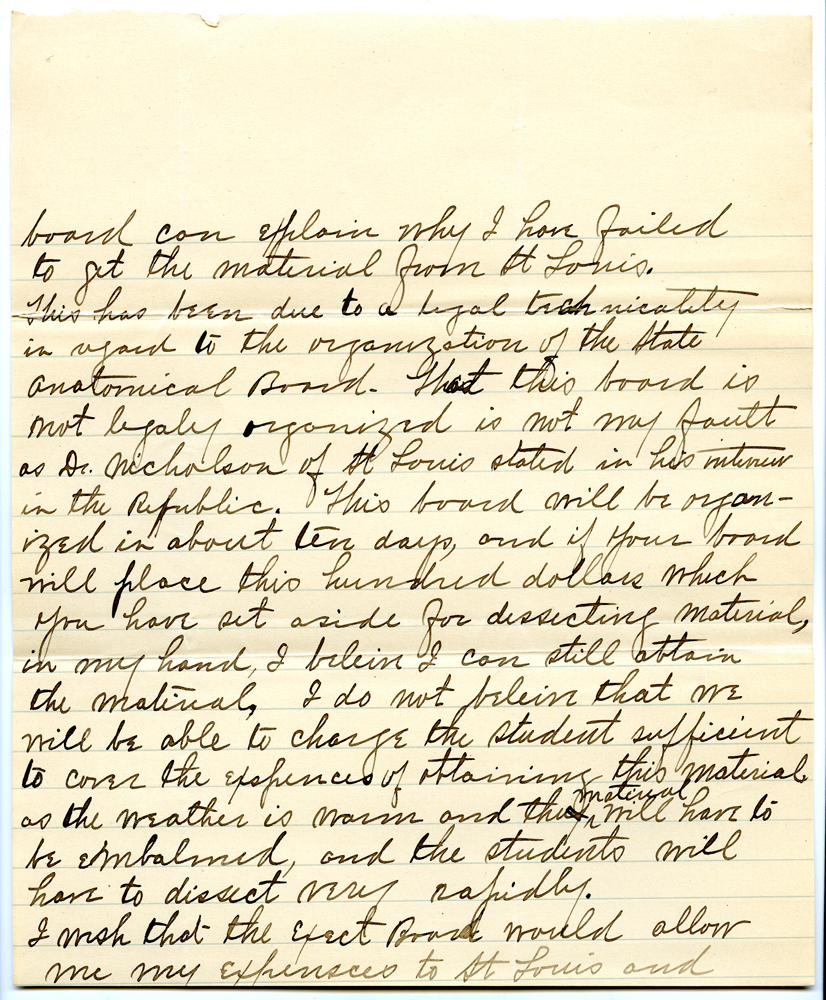 board can explain why I have failed
to get the material from St Louis.
This has been due to a legal technicality
in regard to the organization of the State
Anatomical Board. That this board is
not legaly organized is not my fault
as Dr. Nicholson of St Louis stated in his interview
in the Republic. This board will be organ-
ized in about ten days, and if your board
will place this hundred dollars which
you have set aside for dissecting material,
in my hand, I beleive I can still obtain
the material. I do not beleive that we
will be able to charge the student sufficient
to cover the expences of obtaining this material.
as the weather is warm and the material will have to
be embalmed, and the students will
have to dissect very rapidly.
I wish that the Exect Board would allow
me my expensces to St Louis and